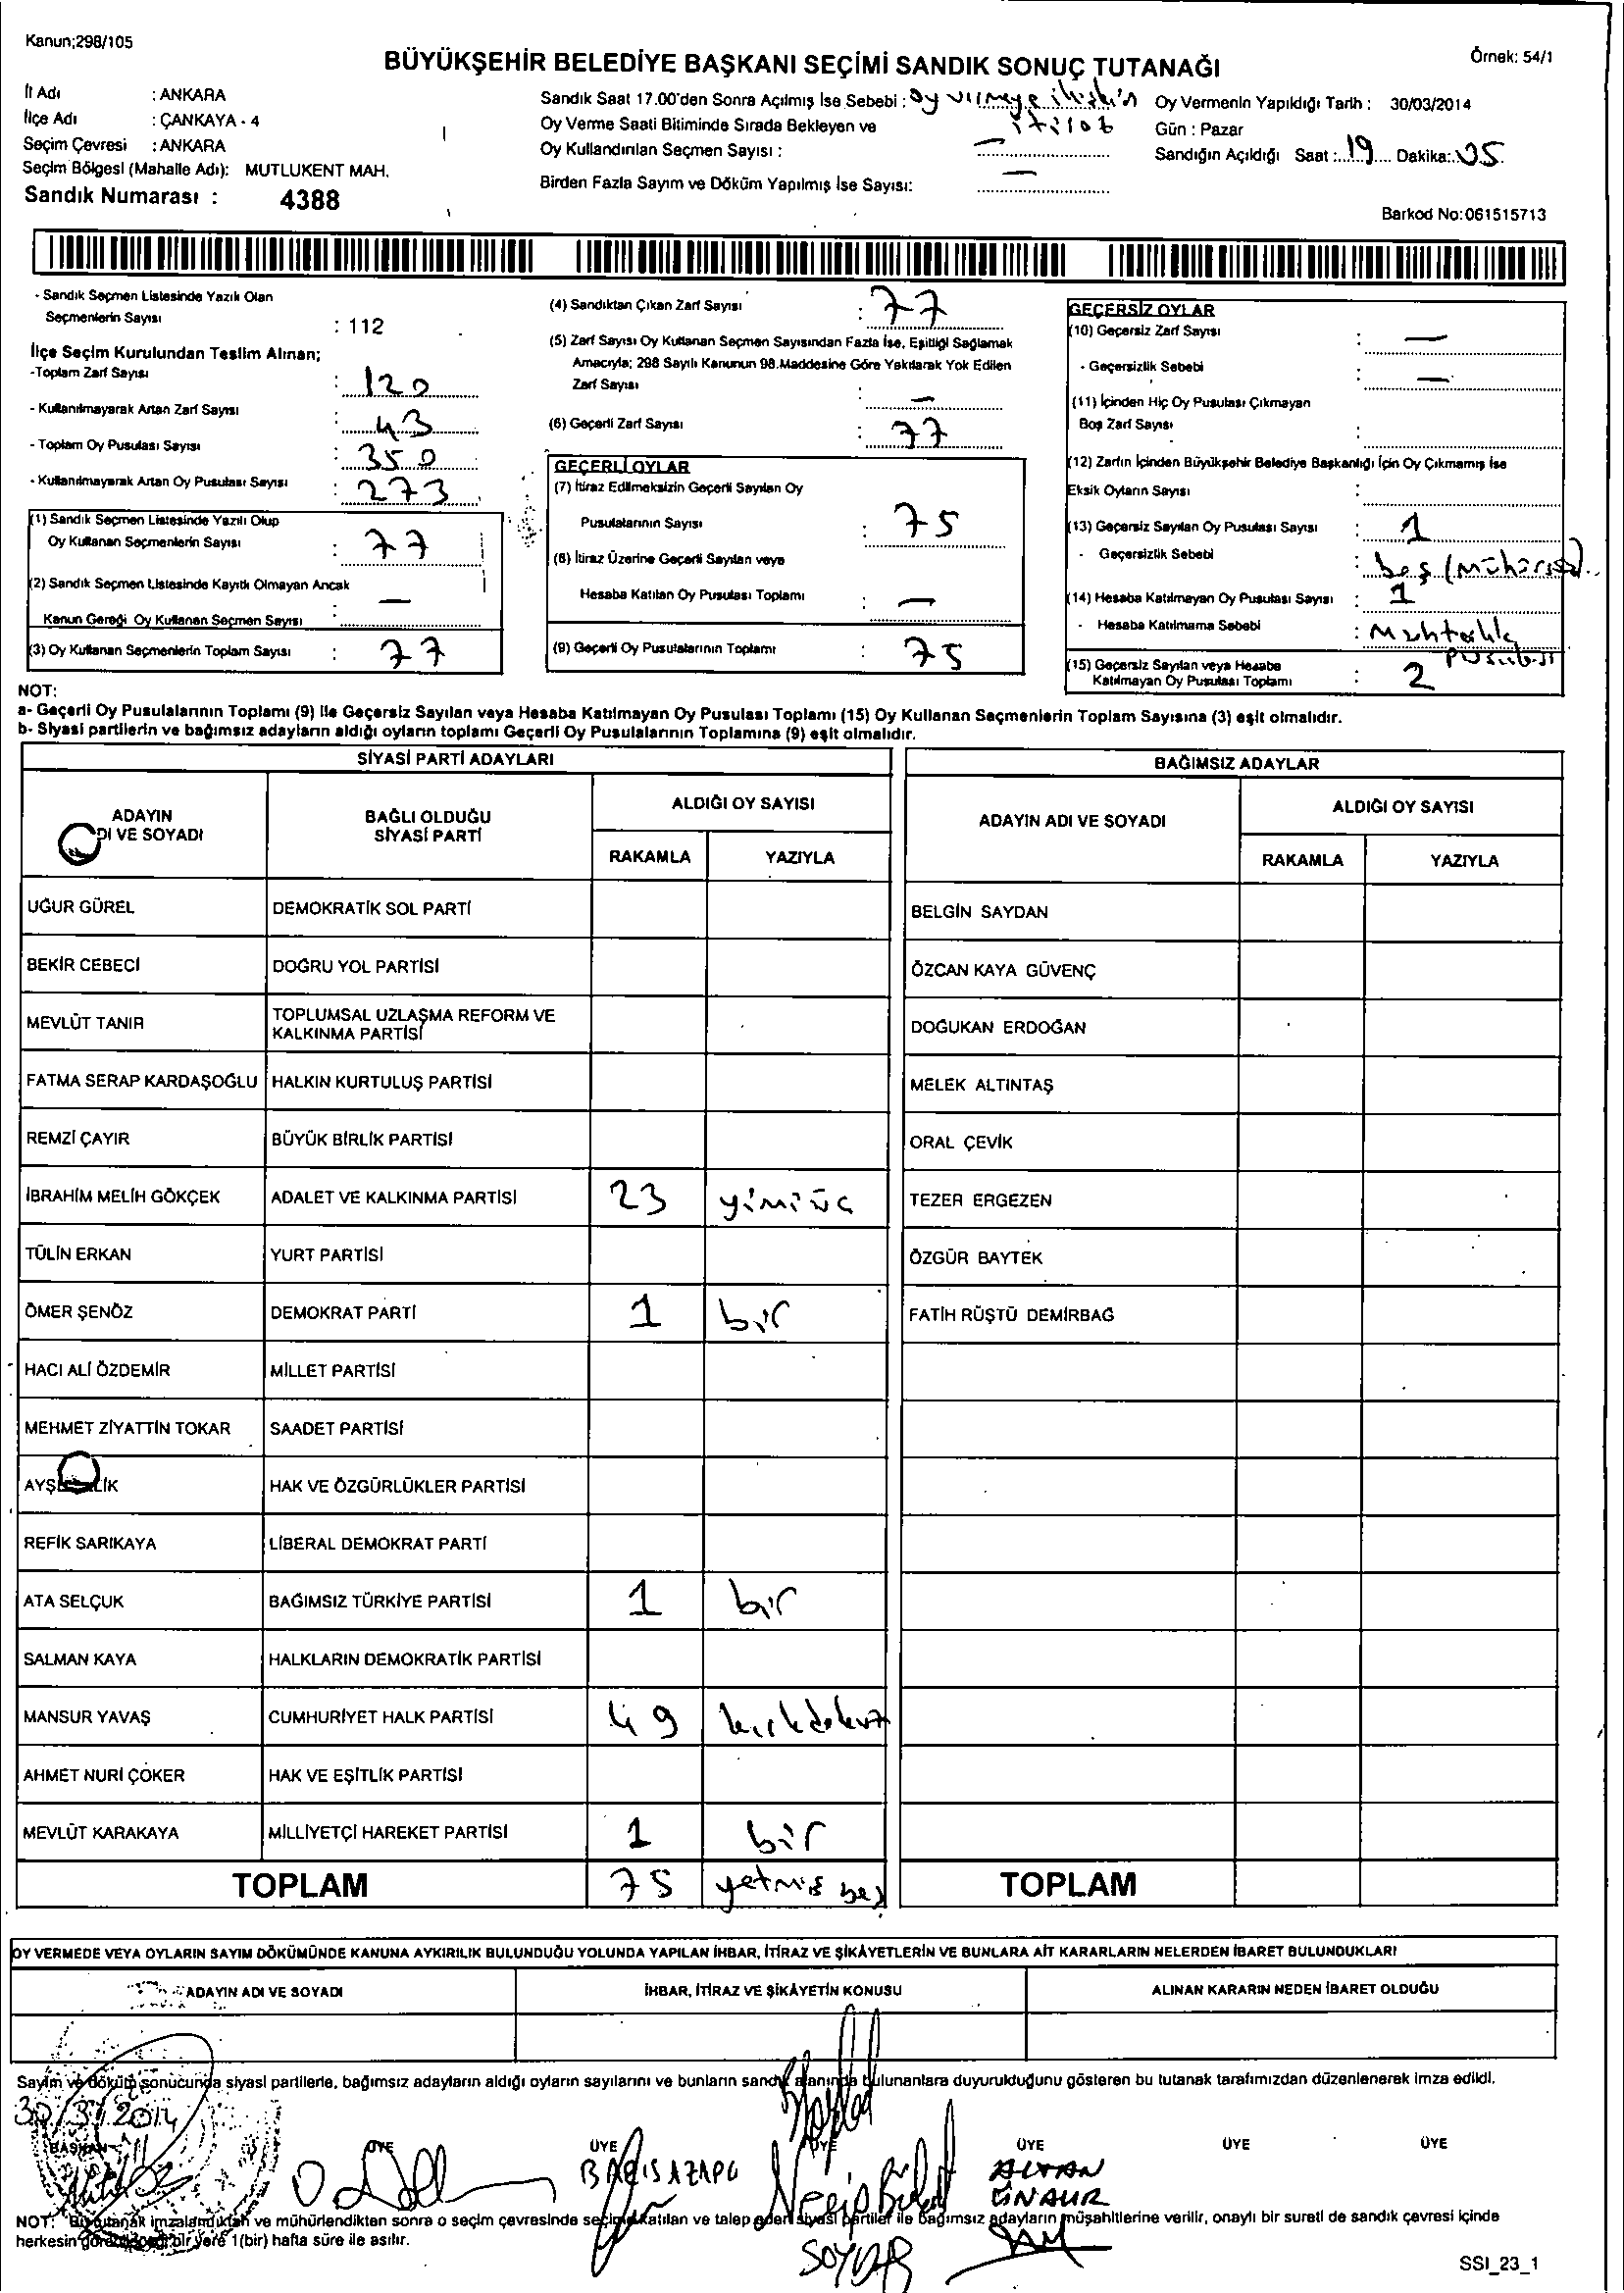 Kanun;298/105
BÜYÜKŞEHİR BELEDİYE BAŞKANI SEÇİMİ SANDIK SONUÇ TUTANAĞI
Örnek: 54/1
İl Adı : ANKARA
İlçe Adı : ÇANKAYA - 4
Seçim Çevresi : ANKARA
Seçim Bölgesi (Mahalle Adı): MUTLUKENT MAH.
Sandık Numarası : 4388
Sandık Saat 17.00'den Sonra Açılmış İse Sebebi : oy
Oy Verme Saati Bitiminde Sırada Bekleyen ve
Oy Kullandırılan Seçmen Sayısı : —
Birden Fazla Sayım ve Döküm Yapılmış İse Sayısı: —
Oy Vermenin Yapıldığı Tarih : 30/03/2014
Gün : Pazar
Sandığın Açıldığı Saat : 19 Dakika: 05
Barkod No:061515713
- Sandık Seçmen Listesinde Yazılı Olan
Seçmenlerin Sayısı : 112
İlçe Seçim Kurulundan Teslim Alınan;
-Toplam Zarf Sayısı : 120
- Kullanılmayarak Artan Zarf Sayısı : 43
- Toplam Oy Pusulası Sayısı : 350
- Kullanılmayarak Artan Oy Pusulası Sayısı : 273
(1) Sandık Seçmen Listesinde Yazılı Olup
Oy Kullanan Seçmenlerin Sayısı : 77
(2) Sandık Seçmen Listesinde Kayıtlı Olmayan Ancak
Kanun Gereği Oy Kullanan Seçmen Sayısı : —
(3) Oy Kullanan Seçmenlerin Toplam Sayısı : 77
(4) Sandıktan Çıkan Zarf Sayısı : 77
(5) Zarf Sayısı Oy Kullanan Seçmen Sayısından Fazla İse, Eşitliği Sağlamak
Amacıyla; 298 Sayılı Kanunun 98.Maddesine Göre Yakılarak Yok Edilen
Zarf Sayısı : —
(6) Geçerli Zarf Sayısı : 77
GEÇERLİ OYLAR
(7) İtiraz Edilmeksizin Geçerli Sayılan Oy
Pusulalarının Sayısı : 75
(8) İtiraz Üzerine Geçerli Sayılan veya
Hesaba Katılan Oy Pusulası Toplamı : —
(9) Geçerli Oy Pusulalarının Toplamı : 75
GEÇERSİZ OYLAR
(10) Geçersiz Zarf Sayısı : —
- Geçersizlik Sebebi : —
(11) İçinden Hiç Oy Pusulası Çıkmayan
Boş Zarf Sayısı :
(12) Zarfın İçinden Büyükşehir Belediye Başkanlığı İçin Oy Çıkmamış İse
Eksik Oyların Sayısı :
(13) Geçersiz Sayılan Oy Pusulası Sayısı : 1
- Geçersizlik Sebebi :
(14) Hesaba Katılmayan Oy Pusulası Sayısı : 1
- Hesaba Katılmama Sebebi : Muhtarlık
pusulası
(15) Geçersiz Sayılan veya Hesaba
Katılmayan Oy Pusulası Toplamı : 2
NOT:
a- Geçerli Oy Pusulalarının Toplamı (9) ile Geçersiz Sayılan veya Hesaba Katılmayan Oy Pusulası Toplamı (15) Oy Kullanan Seçmenlerin Toplam Sayısına (3) eşit olmalıdır.
b- Siyasi partilerin ve bağımsız adayların aldığı oyların toplamı Geçerli Oy Pusulalarının Toplamına (9) eşit olmalıdır.
SİYASİ PARTİ ADAYLARI
ADAYIN
DI VE SOYADI
BAĞLI OLDUĞU
SİYASİ PARTİ
ALDIĞI OY SAYISI
RAKAMLA YAZIYLA
UĞUR GÜREL DEMOKRATİK SOL PARTİ
BEKİR CEBECİ DOĞRU YOL PARTİSİ
MEVLÜT TANIR TOPLUMSAL UZLAŞMA REFORM VE
KALKINMA PARTİSİ
FATMA SERAP KARDAŞOĞLU HALKIN KURTULUŞ PARTİSİ
REMZİ ÇAYIR BÜYÜK BİRLİK PARTİSİ
İBRAHİM MELİH GÖKÇEK ADALET VE KALKINMA PARTİSİ 23 yimiüç
TÜLİN ERKAN YURT PARTİSİ
ÖMER ŞENÖZ DEMOKRAT PARTİ 1 bir
HACI ALİ ÖZDEMİR MİLLET PARTİSİ
MEHMET ZİYATTİN TOKAR SAADET PARTİSİ
HAK VE ÖZGÜRLÜKLER PARTİSİ
REFİK SARIKAYA LİBERAL DEMOKRAT PARTİ
ATA SELÇUK BAĞIMSIZ TÜRKİYE PARTİSİ 1 bir
SALMAN KAYA HALKLARIN DEMOKRATİK PARTİSİ
MANSUR YAVAŞ CUMHURİYET HALK PARTİSİ 49 kırkdokuz
AHMET NURİ ÇÖKER HAK VE EŞİTLİK PARTİSİ
MEVLÜT KARAKAYA MİLLİYETÇİ HAREKET PARTİSİ 1 bir
TOPLAM 75 yetmiş beş
BAĞIMSIZ ADAYLAR
ADAYIN ADI VE SOYADI
ALDIĞI OY SAYISI
RAKAMLA YAZIYLA
BELGİN SAYDAN
ÖZCAN KAYA GÜVENÇ
DOĞUKAN ERDOĞAN
MELEK ALTINTAŞ
ORAL ÇEVİK
TEZER ERGEZEN
ÖZGÜR BAYTEK
FATİH RÜŞTÜ DEMİRBAĞ
TOPLAM
OY VERMEDE VEYA OYLARIN SAYIM DÖKÜMÜNDE KANUNA AYKIRILIK BULUNDUĞU YOLUNDA YAPILAN İHBAR, İTİRAZ VE ŞİKÂYETLERİN VE BUNLARA AİT KARARLARIN NELERDEN İBARET BULUNDUKLARI
ADAYIN ADI VE SOYADI İHBAR, İTİRAZ VE ŞİKÂYETİN KONUSU ALINAN KARARIN NEDEN İBARET OLDUĞU
Sayım ve döküm sonucunda siyasi partilerle, bağımsız adayların aldığı oyların sayılarını ve bunların sandık alanında bulunanlara duyurulduğunu gösteren bu tutanak tarafımızdan düzenlenerek imza edildi.
30/3/2014
BAŞKAN ÜYE ÜYE ÜYE ÜYE ÜYE ÜYE
ALTAN
ÜNALIR
NOT: Bu tutanak imzalandıktan ve mühürlendikten sonra o seçim çevresinde seçime katılan ve talep eden siyasi partiler ile bağımsız adayların müşahitlerine verilir, onaylı bir sureti de sandık çevresi içinde
herkesin görebileceği bir yere 1(bir) hafta süre ile asılır.
SSI_23_1